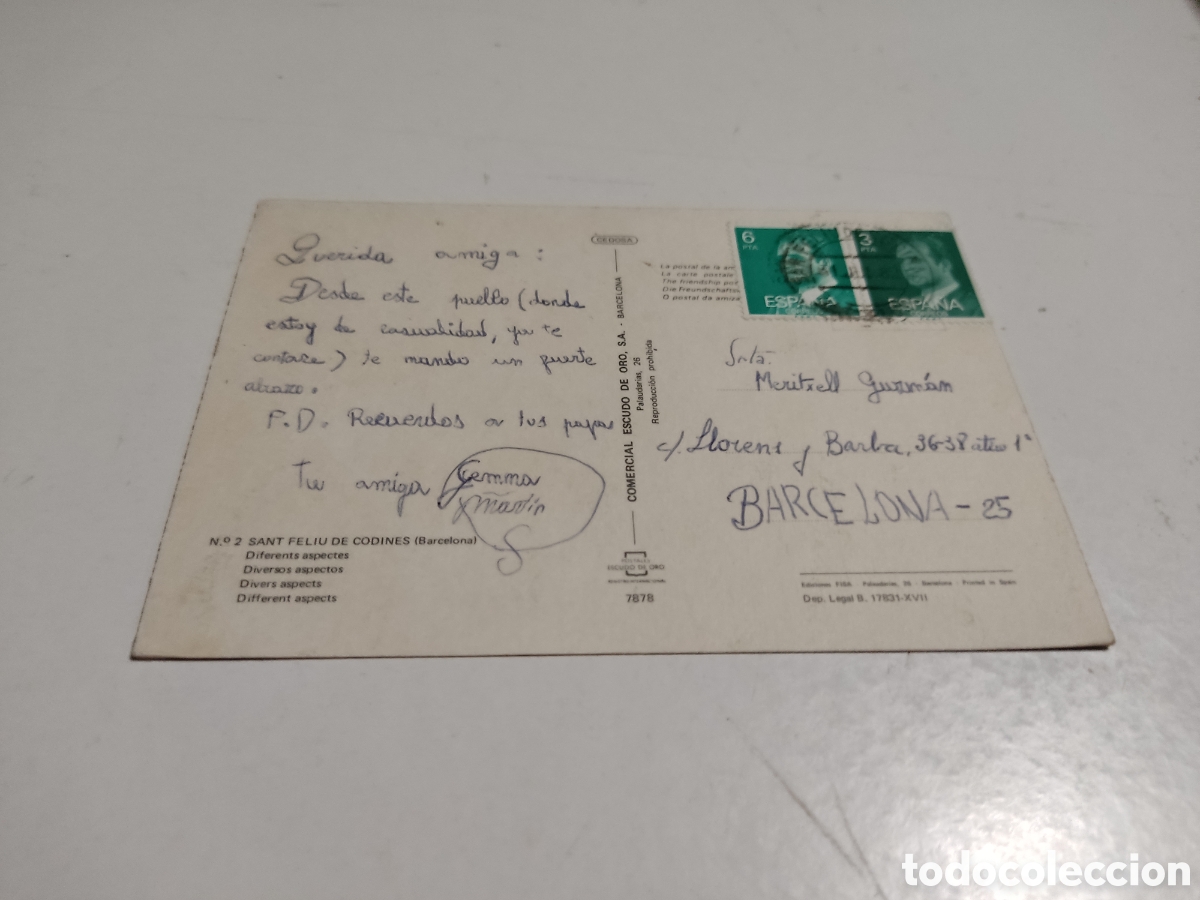 Querida amiga:
Desde este puello (donde
estoy de casualidad, ya te
contare) te mando un fuerte
abrazo.
P.D. Recuerdos a tus papas
Tu amiga Gemma
Martín
N.º 2 SANT FELIU DE CODINES (Barcelona)
Diferents aspectes
Diversos aspectos
Divers aspects
Different aspects
CEDOSA
COMERCIAL ESCUDO DE ORO, S.A. - BARCELONA
Palaudarias, 26
Reproducción prohibida
POSTALES
ESCUDO DE ORO
7878
La postal de la
La carte postale
The friendship
Die Freundschafts
O postal da
6
PTA
ESPAÑA
3
PTA
ESPAÑA
Srta.
Meritxell Guzmán
c/. Llorens y Barba, 36-38 ático 1ª
BARCELONA - 25
Ediciones FISA - Palaudarias, 26 - Barcelona - Printed in Spain
Dep. Legal B. 17831-XVII
todocoleccion